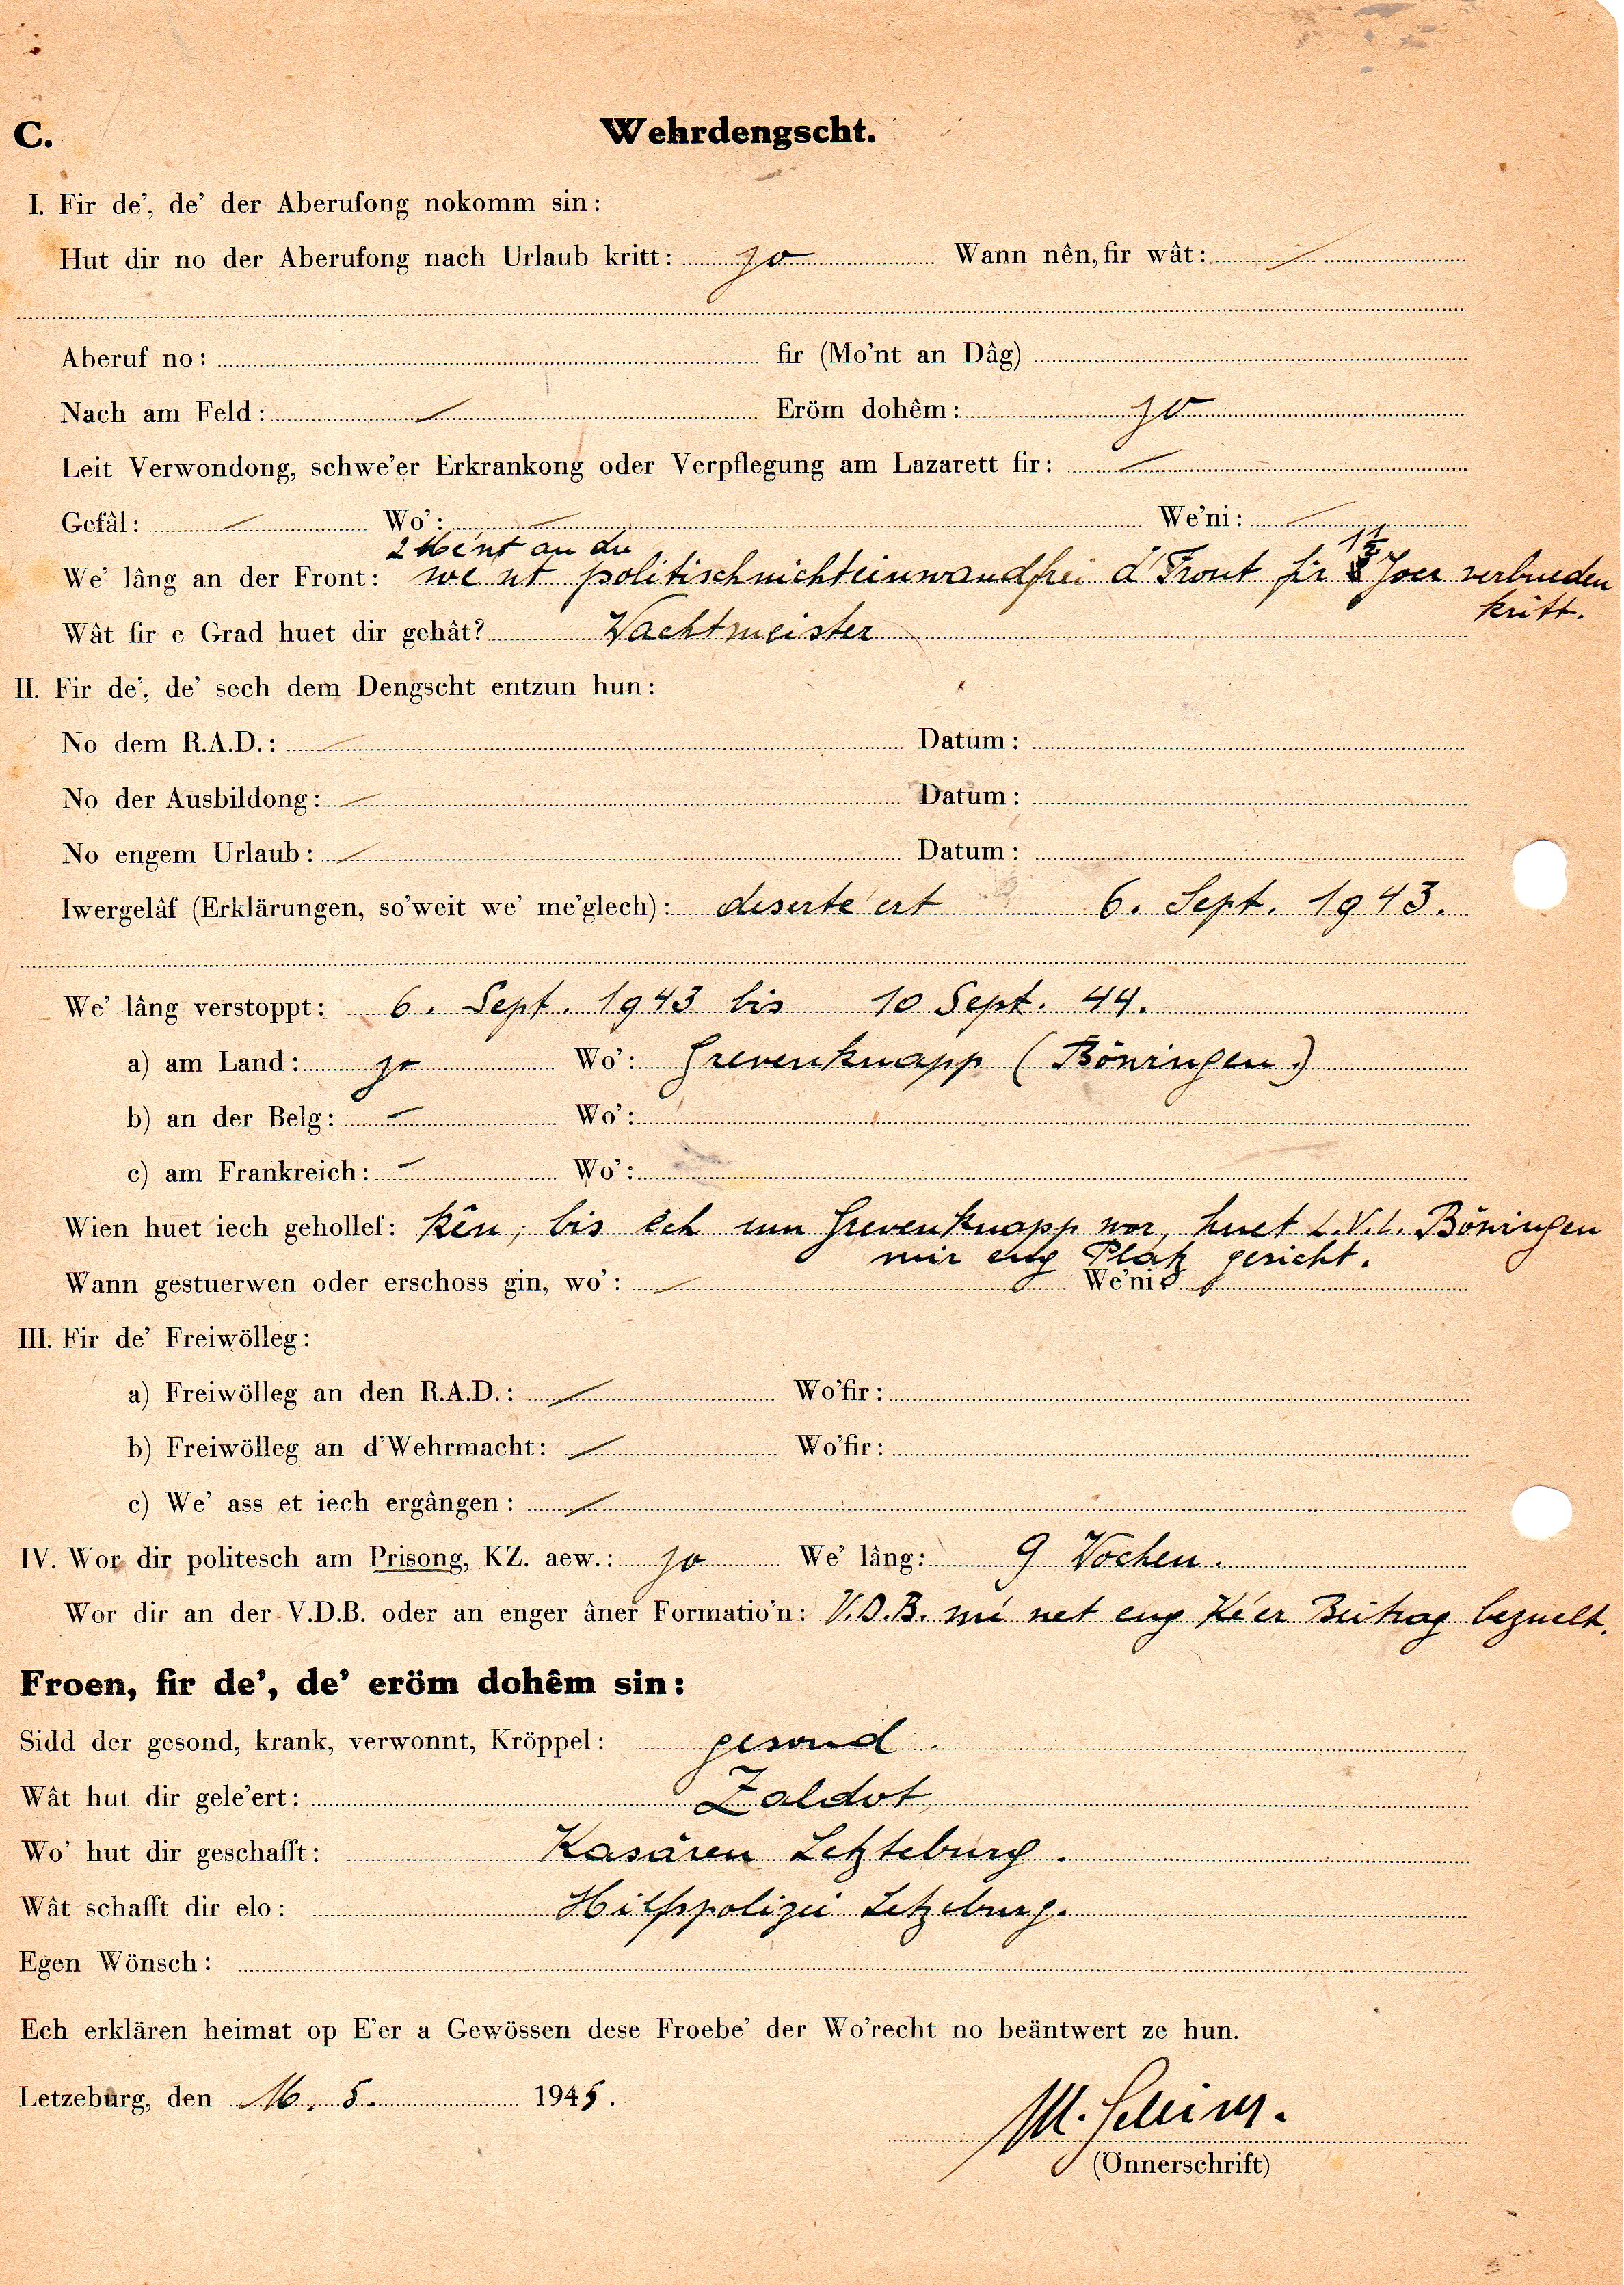 C.
Wehrdengscht.
I. Fir de', de' der Aberufong nokomm sin:
Hut dir no der Aberufong nach Urlaub kritt: jo Wann nên, fir wât: —
Aberuf no: fir (Mo'nt an Dâg)
Nach am Feld: — Eröm dohêm: jo
Leit Verwondong, schwe'er Erkrankong oder Verpflegung am Lazarett fir: —
Gefâl: — Wo': — We'ni: —
2 Mént an du
We' lâng an der Front: we nt politischnichteinwandfrei d'Front fir 1½ Joer verbueden
kritt.
Wât fir e Grad huet dir gehât? Wachtmeister
II. Fir de', de' sech dem Dengscht entzun hun:
No dem R.A.D.: — Datum:
No der Ausbildong: — Datum:
No engem Urlaub: — Datum:
Iwergelâf (Erklärungen, so'weit we' me'glech): deserte'ert 6. Sept. 1943.
We' lâng verstoppt: 6. Sept. 1943 bis 10 Sept. 44.
a) am Land: jo Wo': Grevenknapp (Böwingen)
b) an der Belg: — Wo':
c) am Frankreich: — Wo':
Wien huet iech gehollef: kên, bis ech um Grevenknapp wor, huet L.V.L. Böwingen
mir eng Platz gesicht.
Wann gestuerwen oder erschoss gin, wo': — We'ni
III. Fir de' Freiwölleg:
a) Freiwölleg an den R.A.D.: — Wo'fir:
b) Freiwölleg an d'Wehrmacht: — Wo'fir:
c) We' ass et iech ergângen: —
IV. Wor dir politesch am Prisong, KZ. aew.: jo We' lâng: 9 Wochen.
Wor dir an der V.D.B. oder an enger âner Formatio'n: V.D.B. mé net eng Ké'er Beitrag bezuelt.
Froen, fir de', de' eröm dohêm sin:
Sidd der gesond, krank, verwonnt, Kröppel: gesond.
Wât hut dir gele'ert: Zaldot
Wo' hut dir geschafft: Kasären Letzteburg.
Wât schafft dir elo: Hilfspolizei Letzeburg.
Egen Wönsch:
Ech erklären heimat op E'er a Gewössen dese Froebe' der Wo'recht no beäntwert ze hun.
Letzeburg, den 16. 5. 1945.
(Onnerschrift)